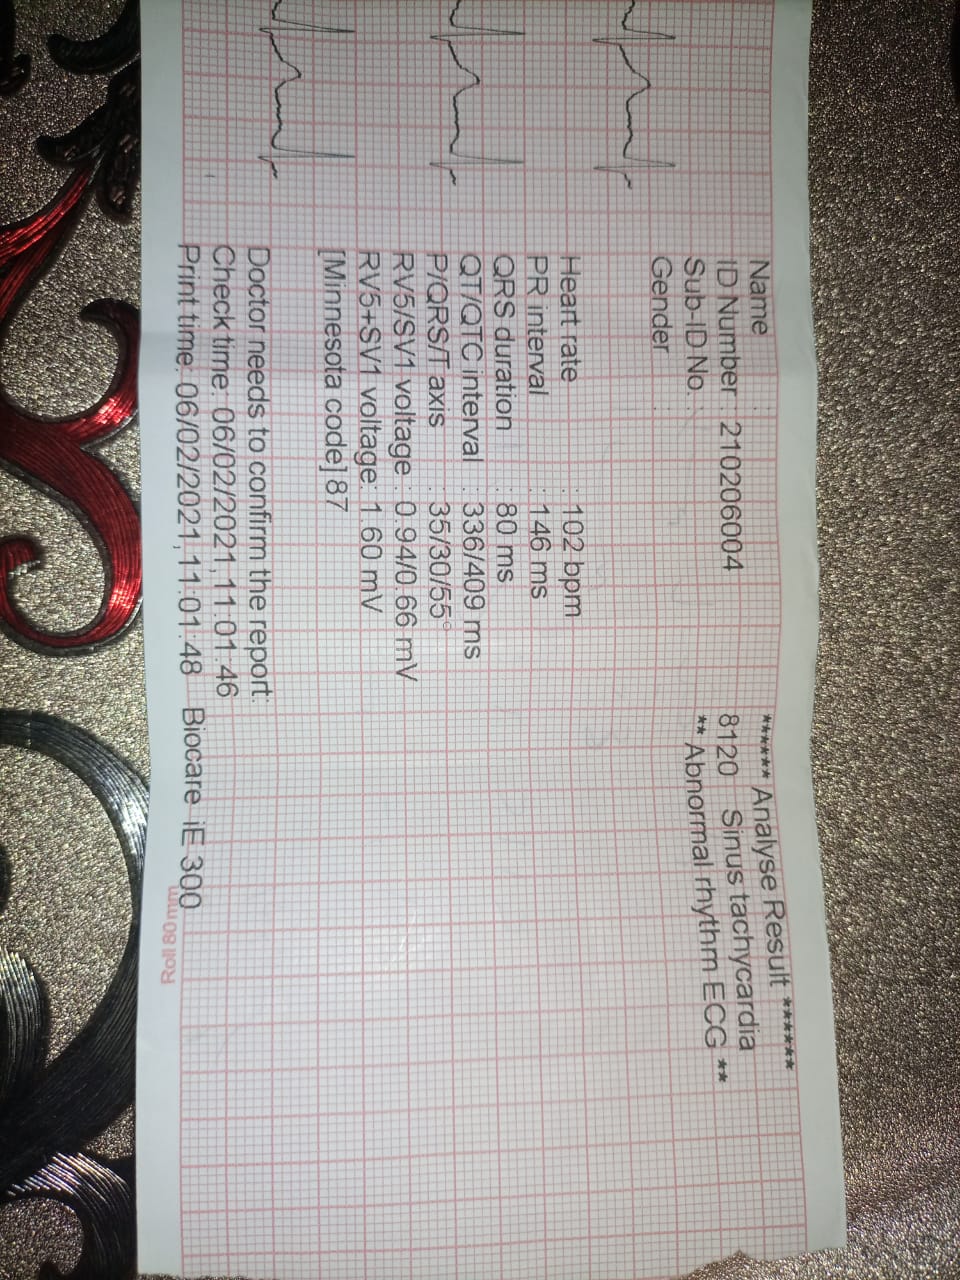 Name :
ID Number : 210206004
Sub-ID No. :
Gender :
Heart rate : 102 bpm
PR interval : 146 ms
QRS duration : 80 ms
QT/QTC interval : 336/409 ms
P/QRS/T axis : 35/30/55°
RV5/SV1 voltage : 0.94/0.66 mV
RV5+SV1 voltage: 1.60 mV
[Minnesota code] 87
Doctor needs to confirm the report:
Check time: 06/02/2021,11:01:46
Print time: 06/02/2021,11:01:48 Biocare iE 300
****** Analyse Result ******
8120 Sinus tachycardia
** Abnormal rhythm ECG **
Roll 80mm